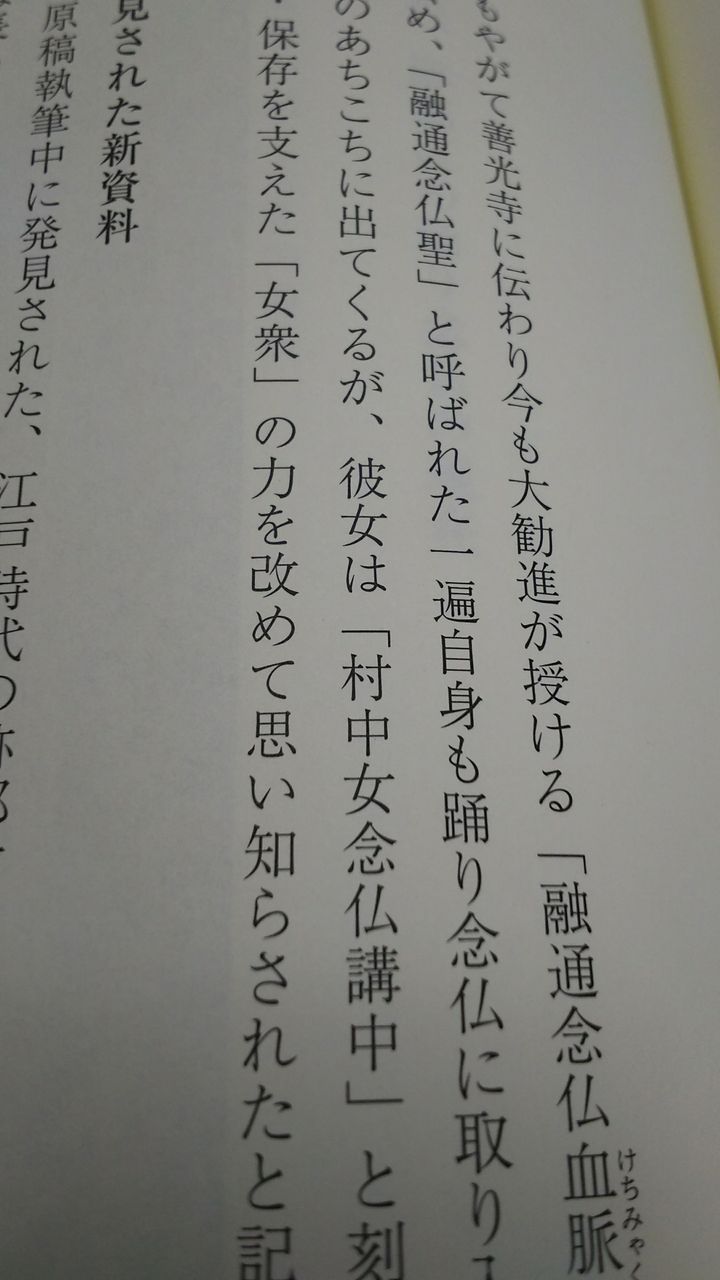 もやがて善光寺に伝わり今も大勧進が授ける「融通念仏血脈
けちみゃく
め、「融通念仏聖」と呼ばれた一遍自身も踊り念仏に取り
のあちこちに出てくるが、彼女は「村中女念仏講中」と刻
・保存を支えた「女衆」の力を改めて思い知らされたと記
見された新資料
原稿執筆中に発見された、江戸時代の